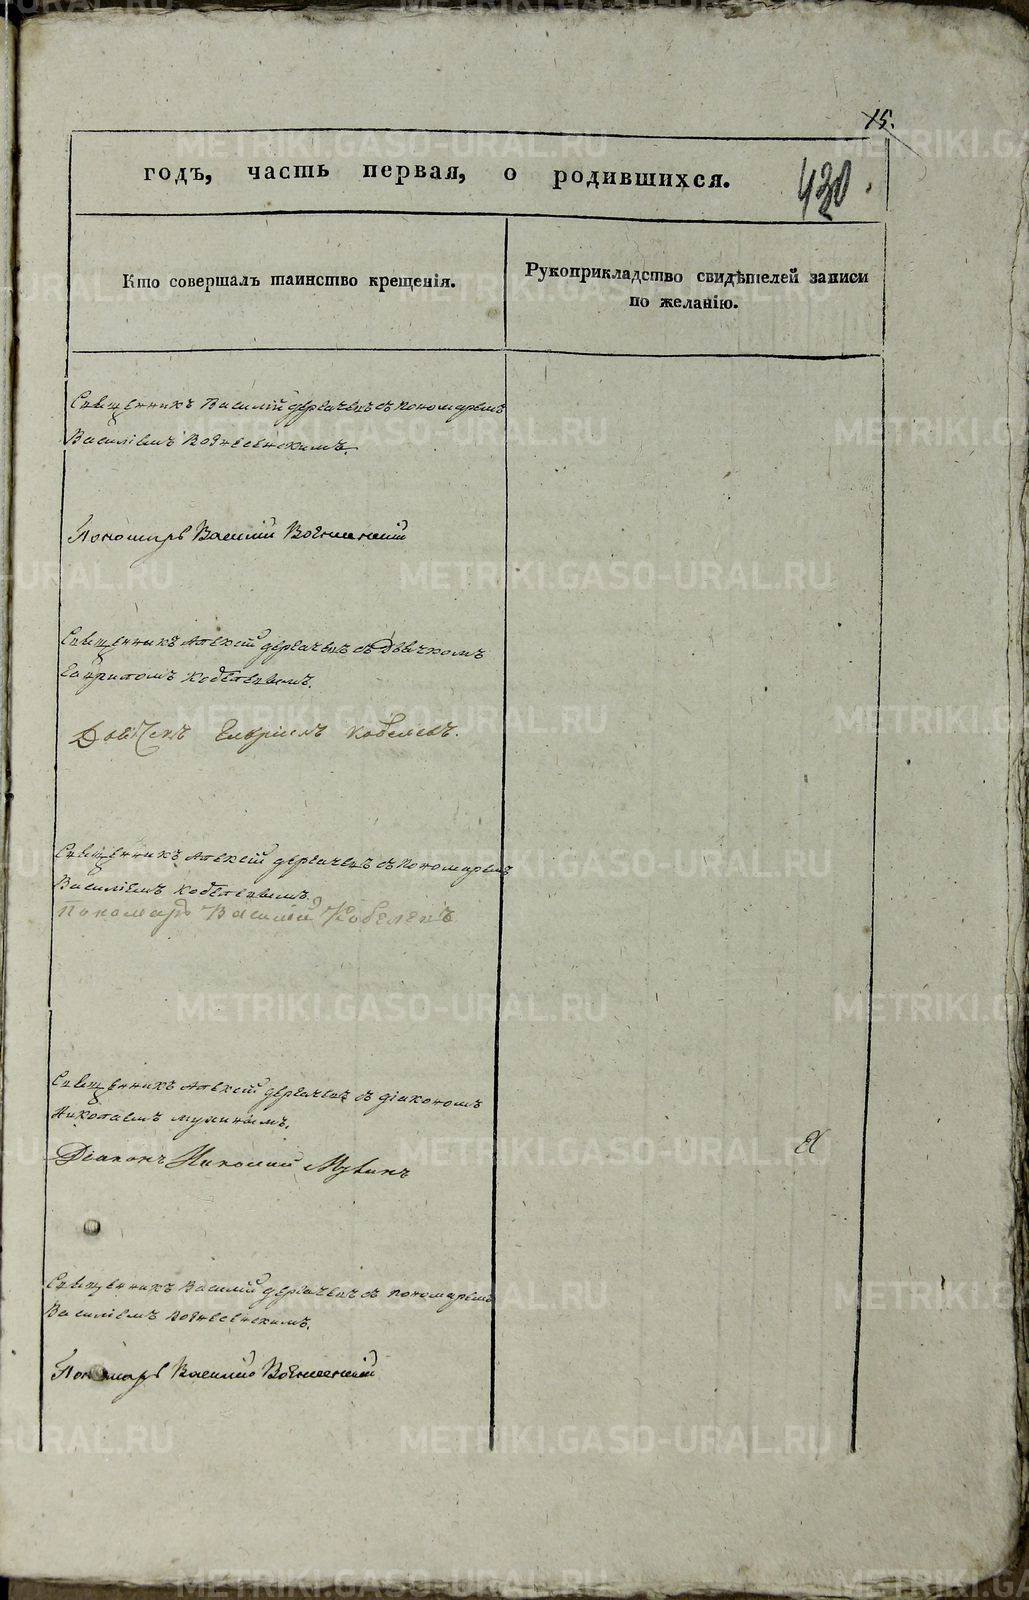 15.
430.
годъ, часть первая, о родившихся.
Кто совершалъ таинство крещенія.
Рукоприкладство свидѣтелей записи
по желанію.
Священникъ Василій Дергачевъ съ пономаремъ
Василіемъ Вознесенскимъ.
Пономарь Василій Вознесенскій
Священникъ Алексій Дергачевъ съ Дьячкомъ
Гавриломъ Кобелевымъ.
Дьячекъ Кобелевъ.
Священникъ Алексій Дергачевъ съ пономаремъ
Василіемъ Кобелевымъ.
Пономарь Василій Кобелевъ
Священникъ Алексій Дергачевъ съ діакономъ
Николаемъ Мухинымъ.
Діаконъ Николай Мухинъ
Священникъ Василій Дергачевъ съ пономаремъ
Василіемъ Вознесенскимъ.
Пономарь Василій Вознесенскій
METRIKI.GASO-URAL.RU